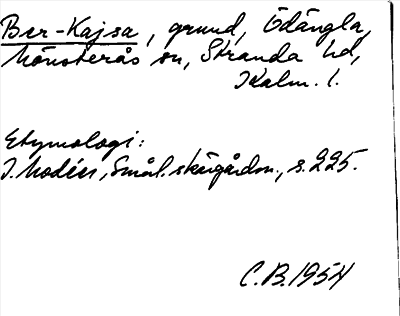 Ber-Kajsa, grund, Ödängla,
Mönsterås sn, Stranda hd,
Kalm. l.
Etymologi:
I. Modéer, Smål. skärgårdsn., s. 225.
C.B. 1954